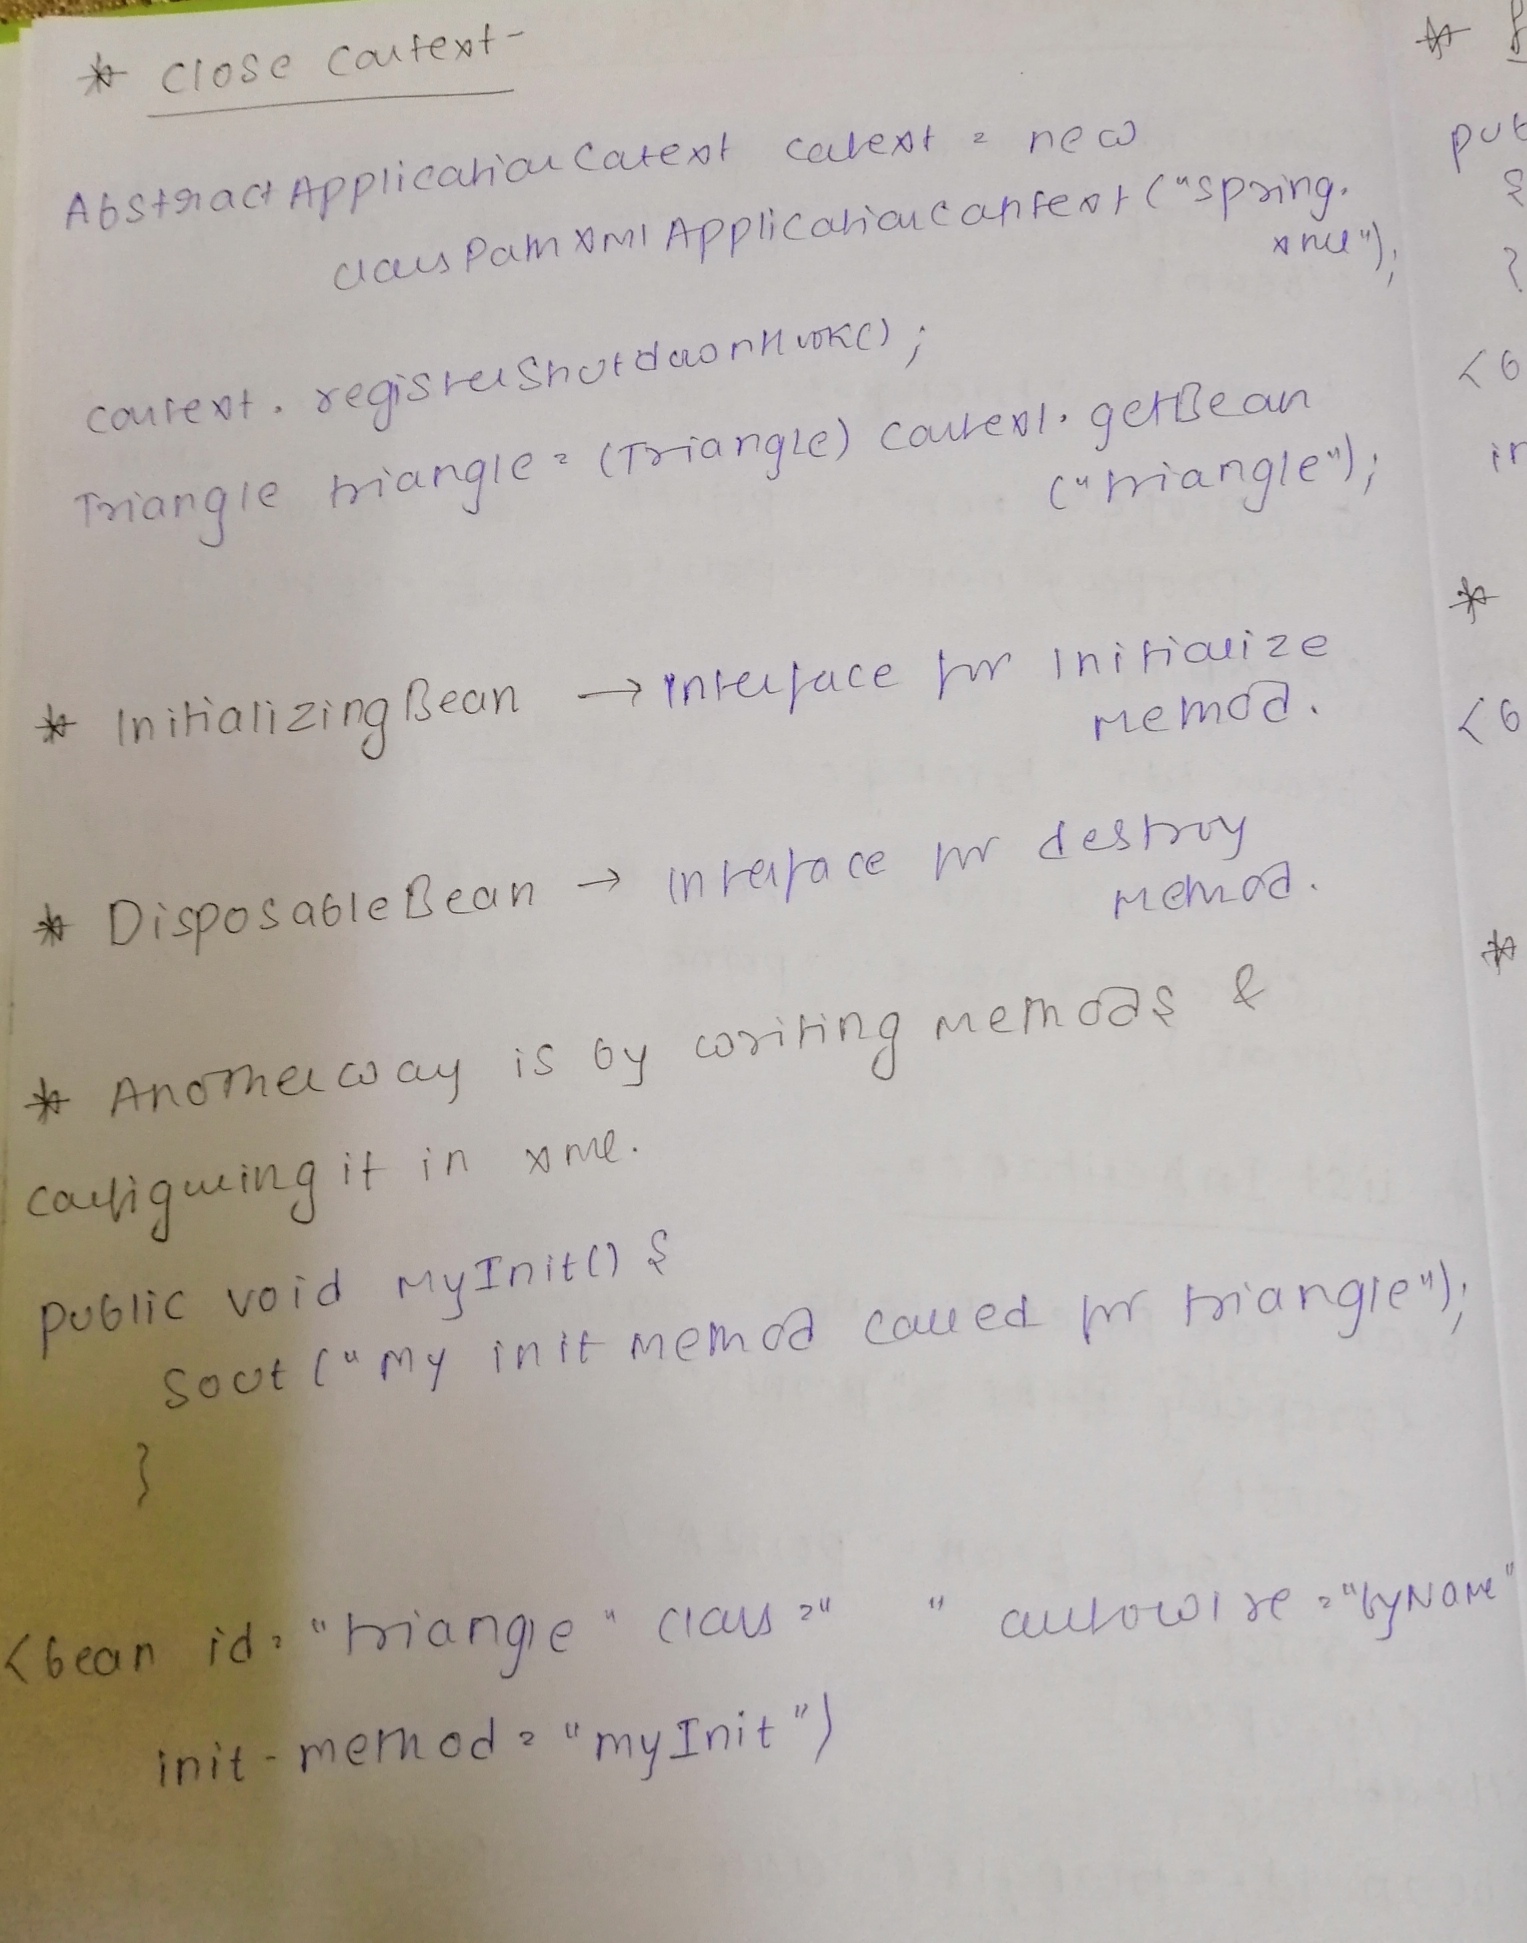 * Close Context-
AbstractApplicationContext context = new
ClassPathXmlApplicationContext("spring.
xml");
context.registerShutdownHook();
Triangle triangle = (Triangle) context.getBean
("triangle");
* InitializingBean → Interface for Initialize
Method.
* DisposableBean → Interface for destroy
Method.
* Another way is by writing methods &
configuring it in xml.
public void MyInit() {
Sout ("My init method called for triangle");
}
<bean id="triangle" class=" " autowire="byName"
init-method="myInit")
*
pub
{
}
<b
in
*
<b
*